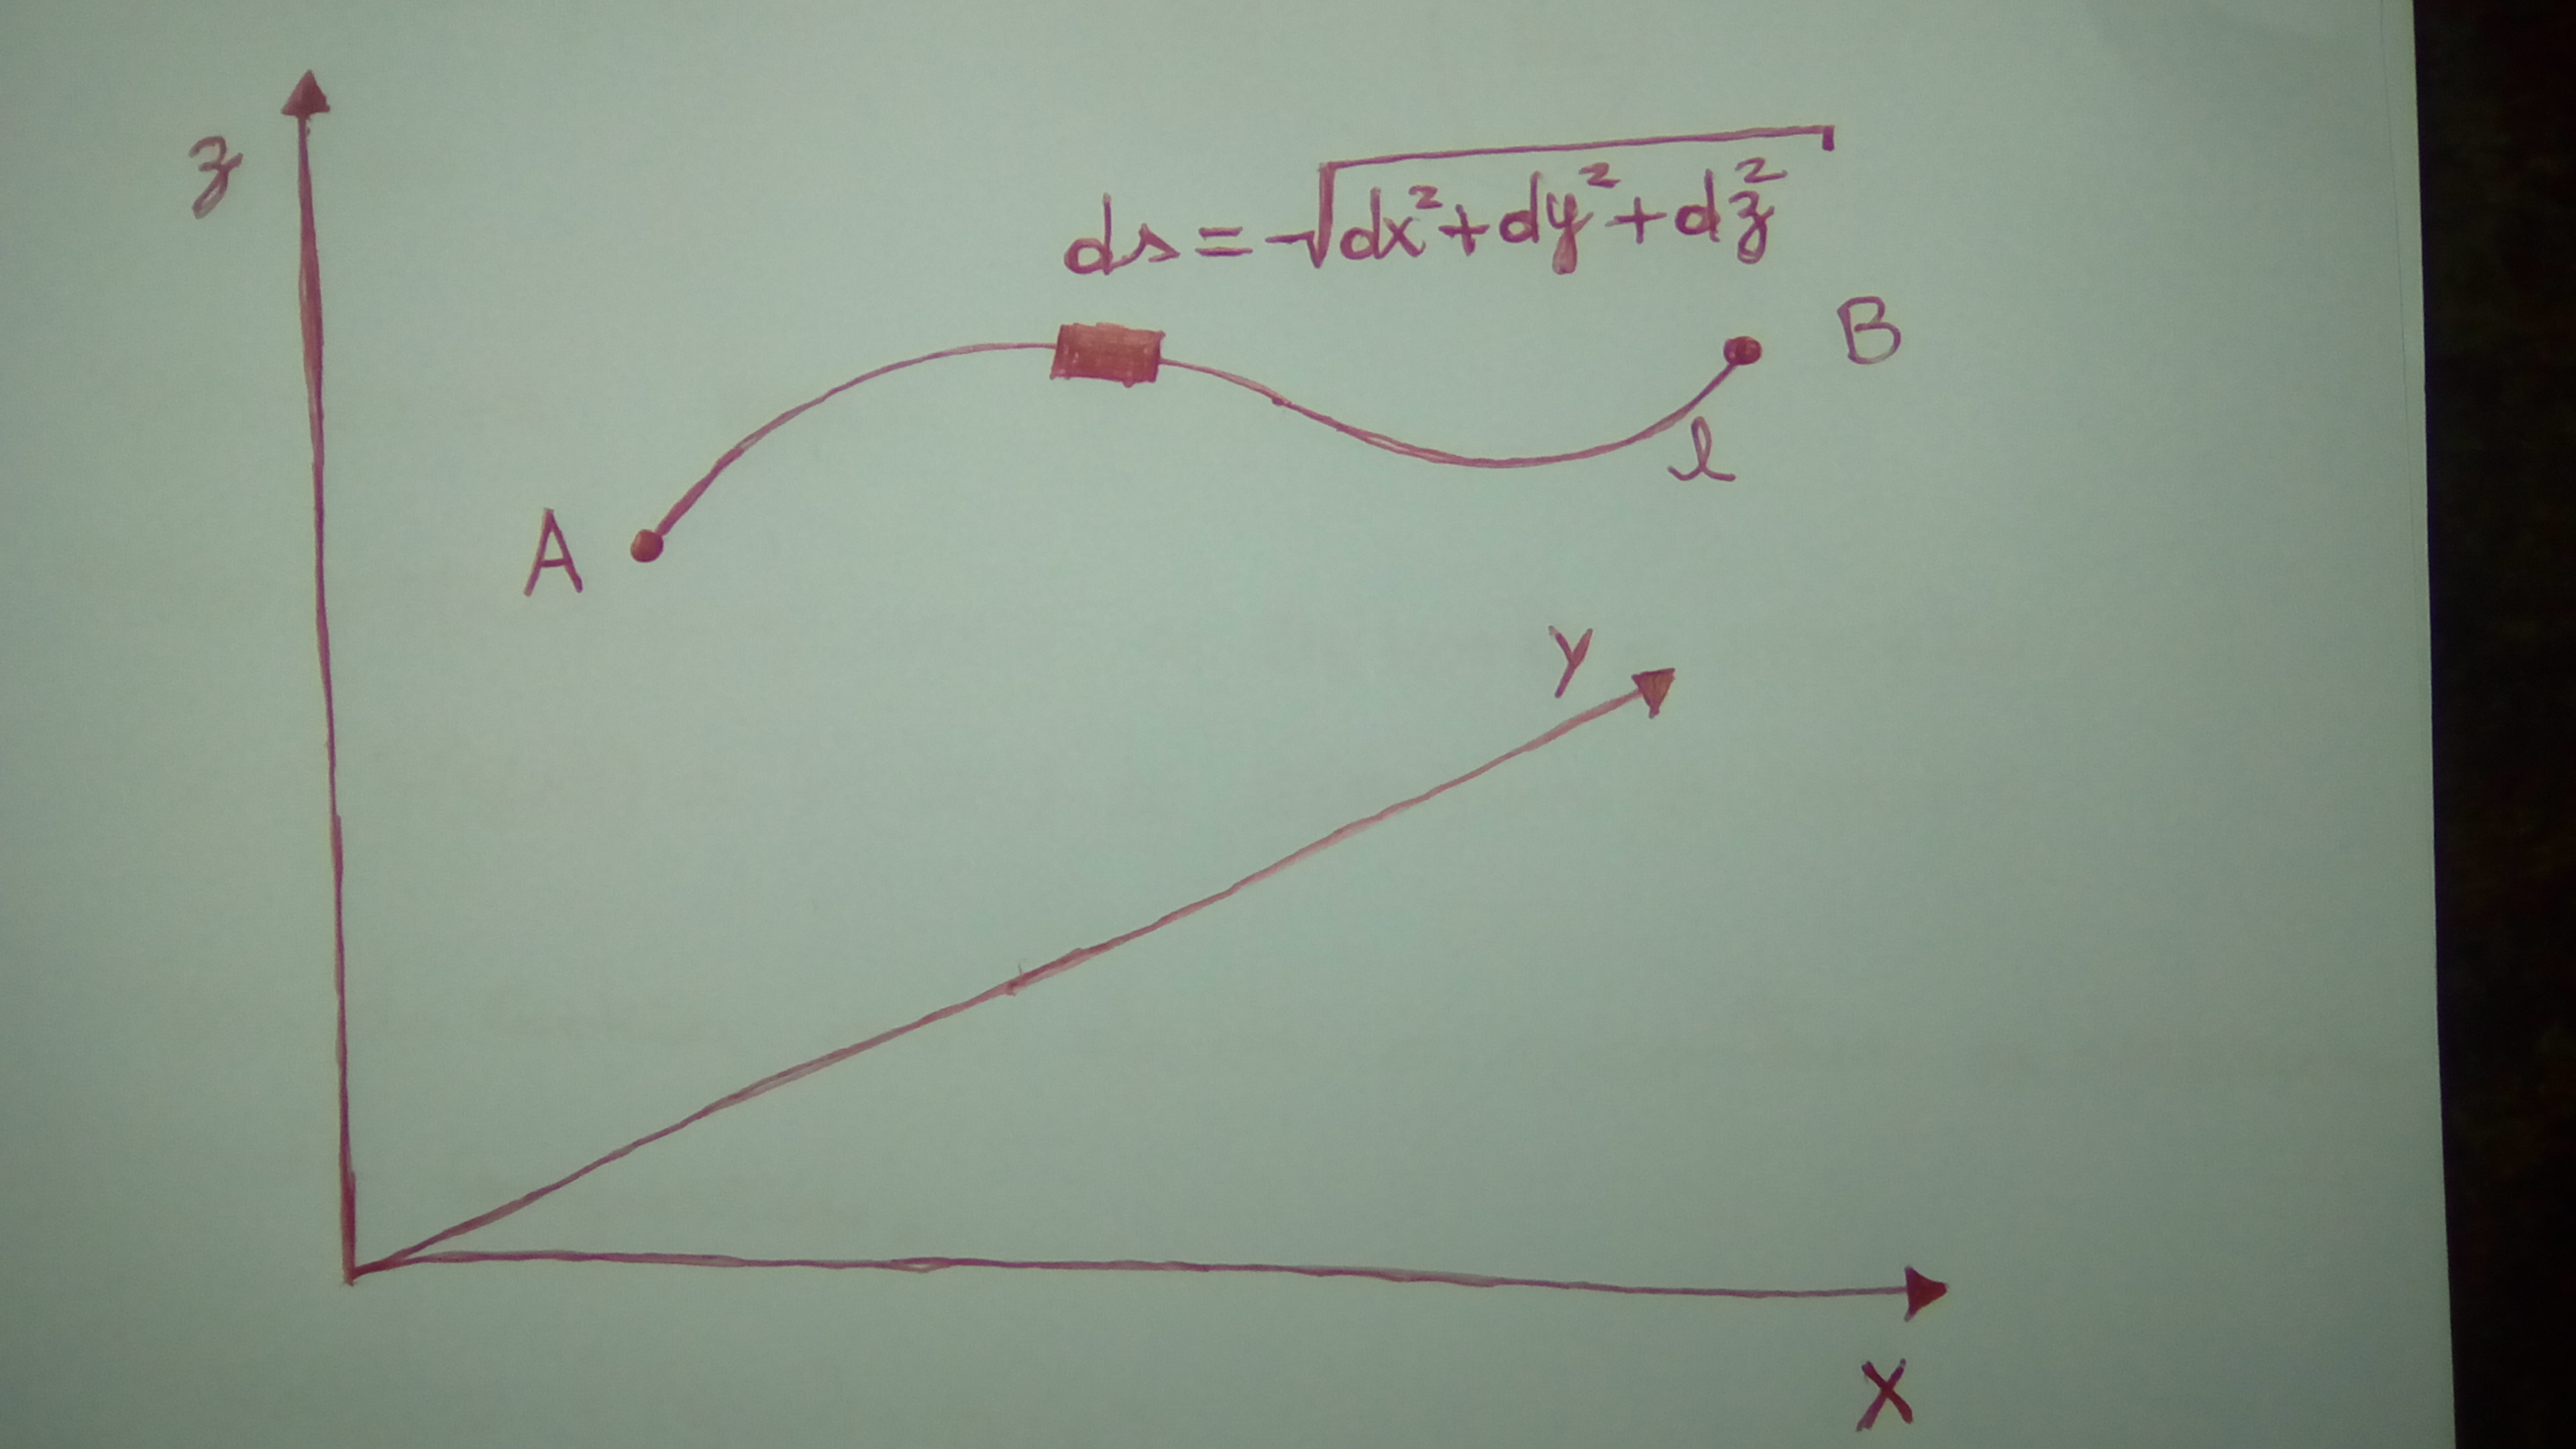 z
ds = √dx²+dy²+dz²
B
l
A
y
X